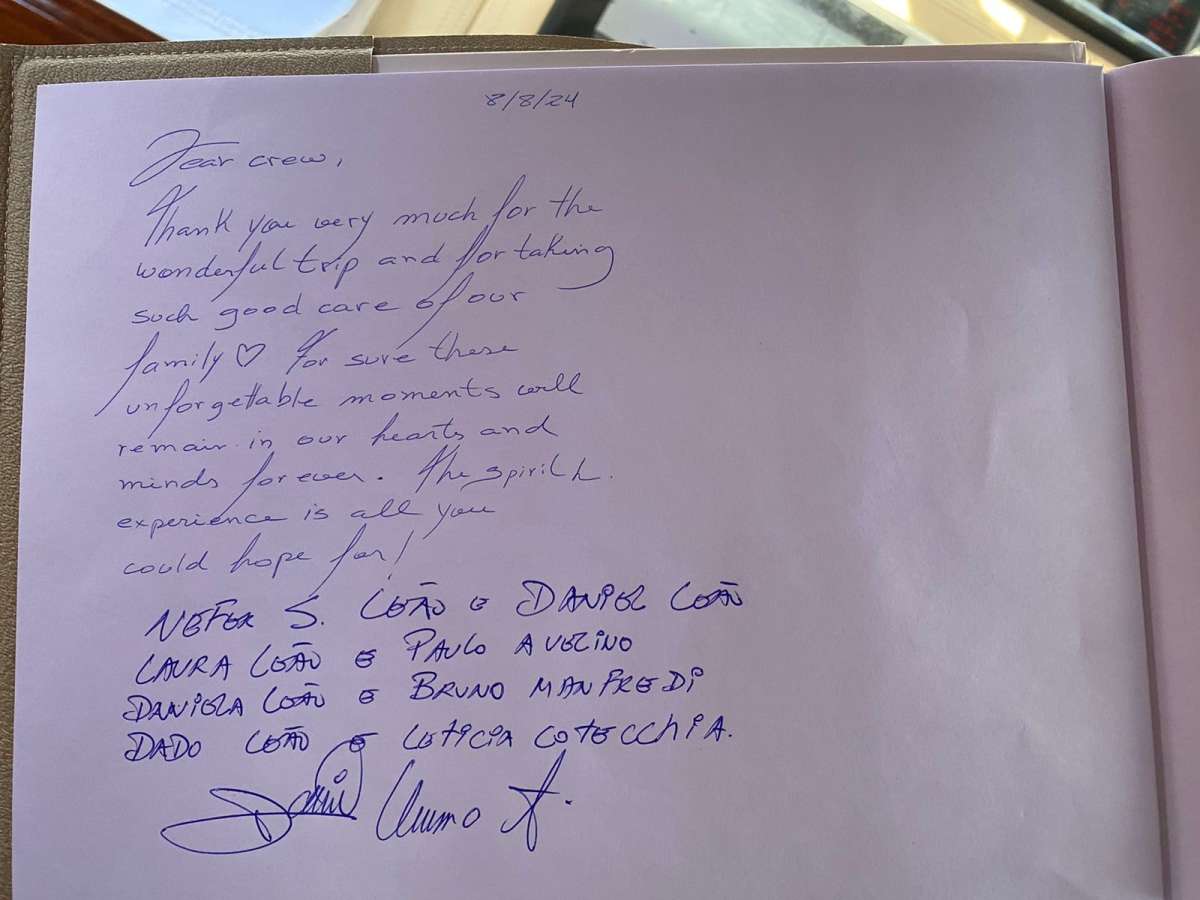 8/8/24
Dear crew,
Thank you very much for the
wonderful trip and for taking
such good care of our
family ♡ For sure these
unforgettable moments will
remain in our hearts and
minds forever. The spirit
experience is all you
could hope for!
NEFER S. LEÃO E DANIEL LEÃO
LAURA LEÃO E PAULO AVELINO
DANIELA LEÃO E BRUNO MANFREDI
DADO LEÃO E LETICIA COTECCHIA.